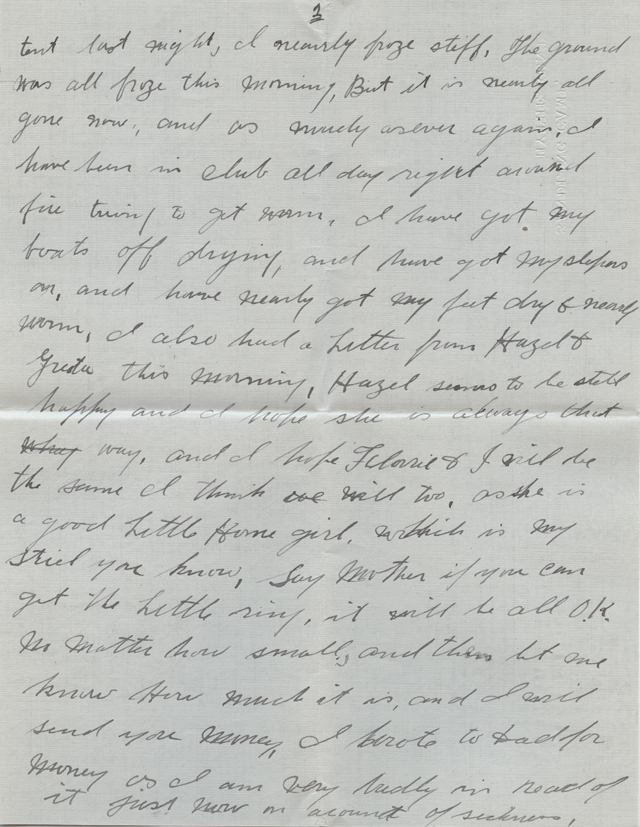 2
tent last night, I nearly froze stiff. The ground
was all froze this morning, But it is nearly all
gone now, and as mudy as ever again. I
have been in club all day right around
fire trwing to get warm, I have got my
boats off drying, and have got my slepers
on, and have nearly got my feet dry & nearly
worm, I also had a Letter from Hazel &
Greta this morning, Hazel seems to be still
happy and I hope she is always that
way, and I hope Flossie & I will be
the same I think we will too, as she is
a good Little Home girl, which is my
stiel you know, Say Mother if you can
get the Little ring, it will be all O.K.
No Matter how small, and then let me
know How much it is, and I will
send you Money, I wrote to Dad for
Money as I am very badly in need of
it just now on acount of sickness,